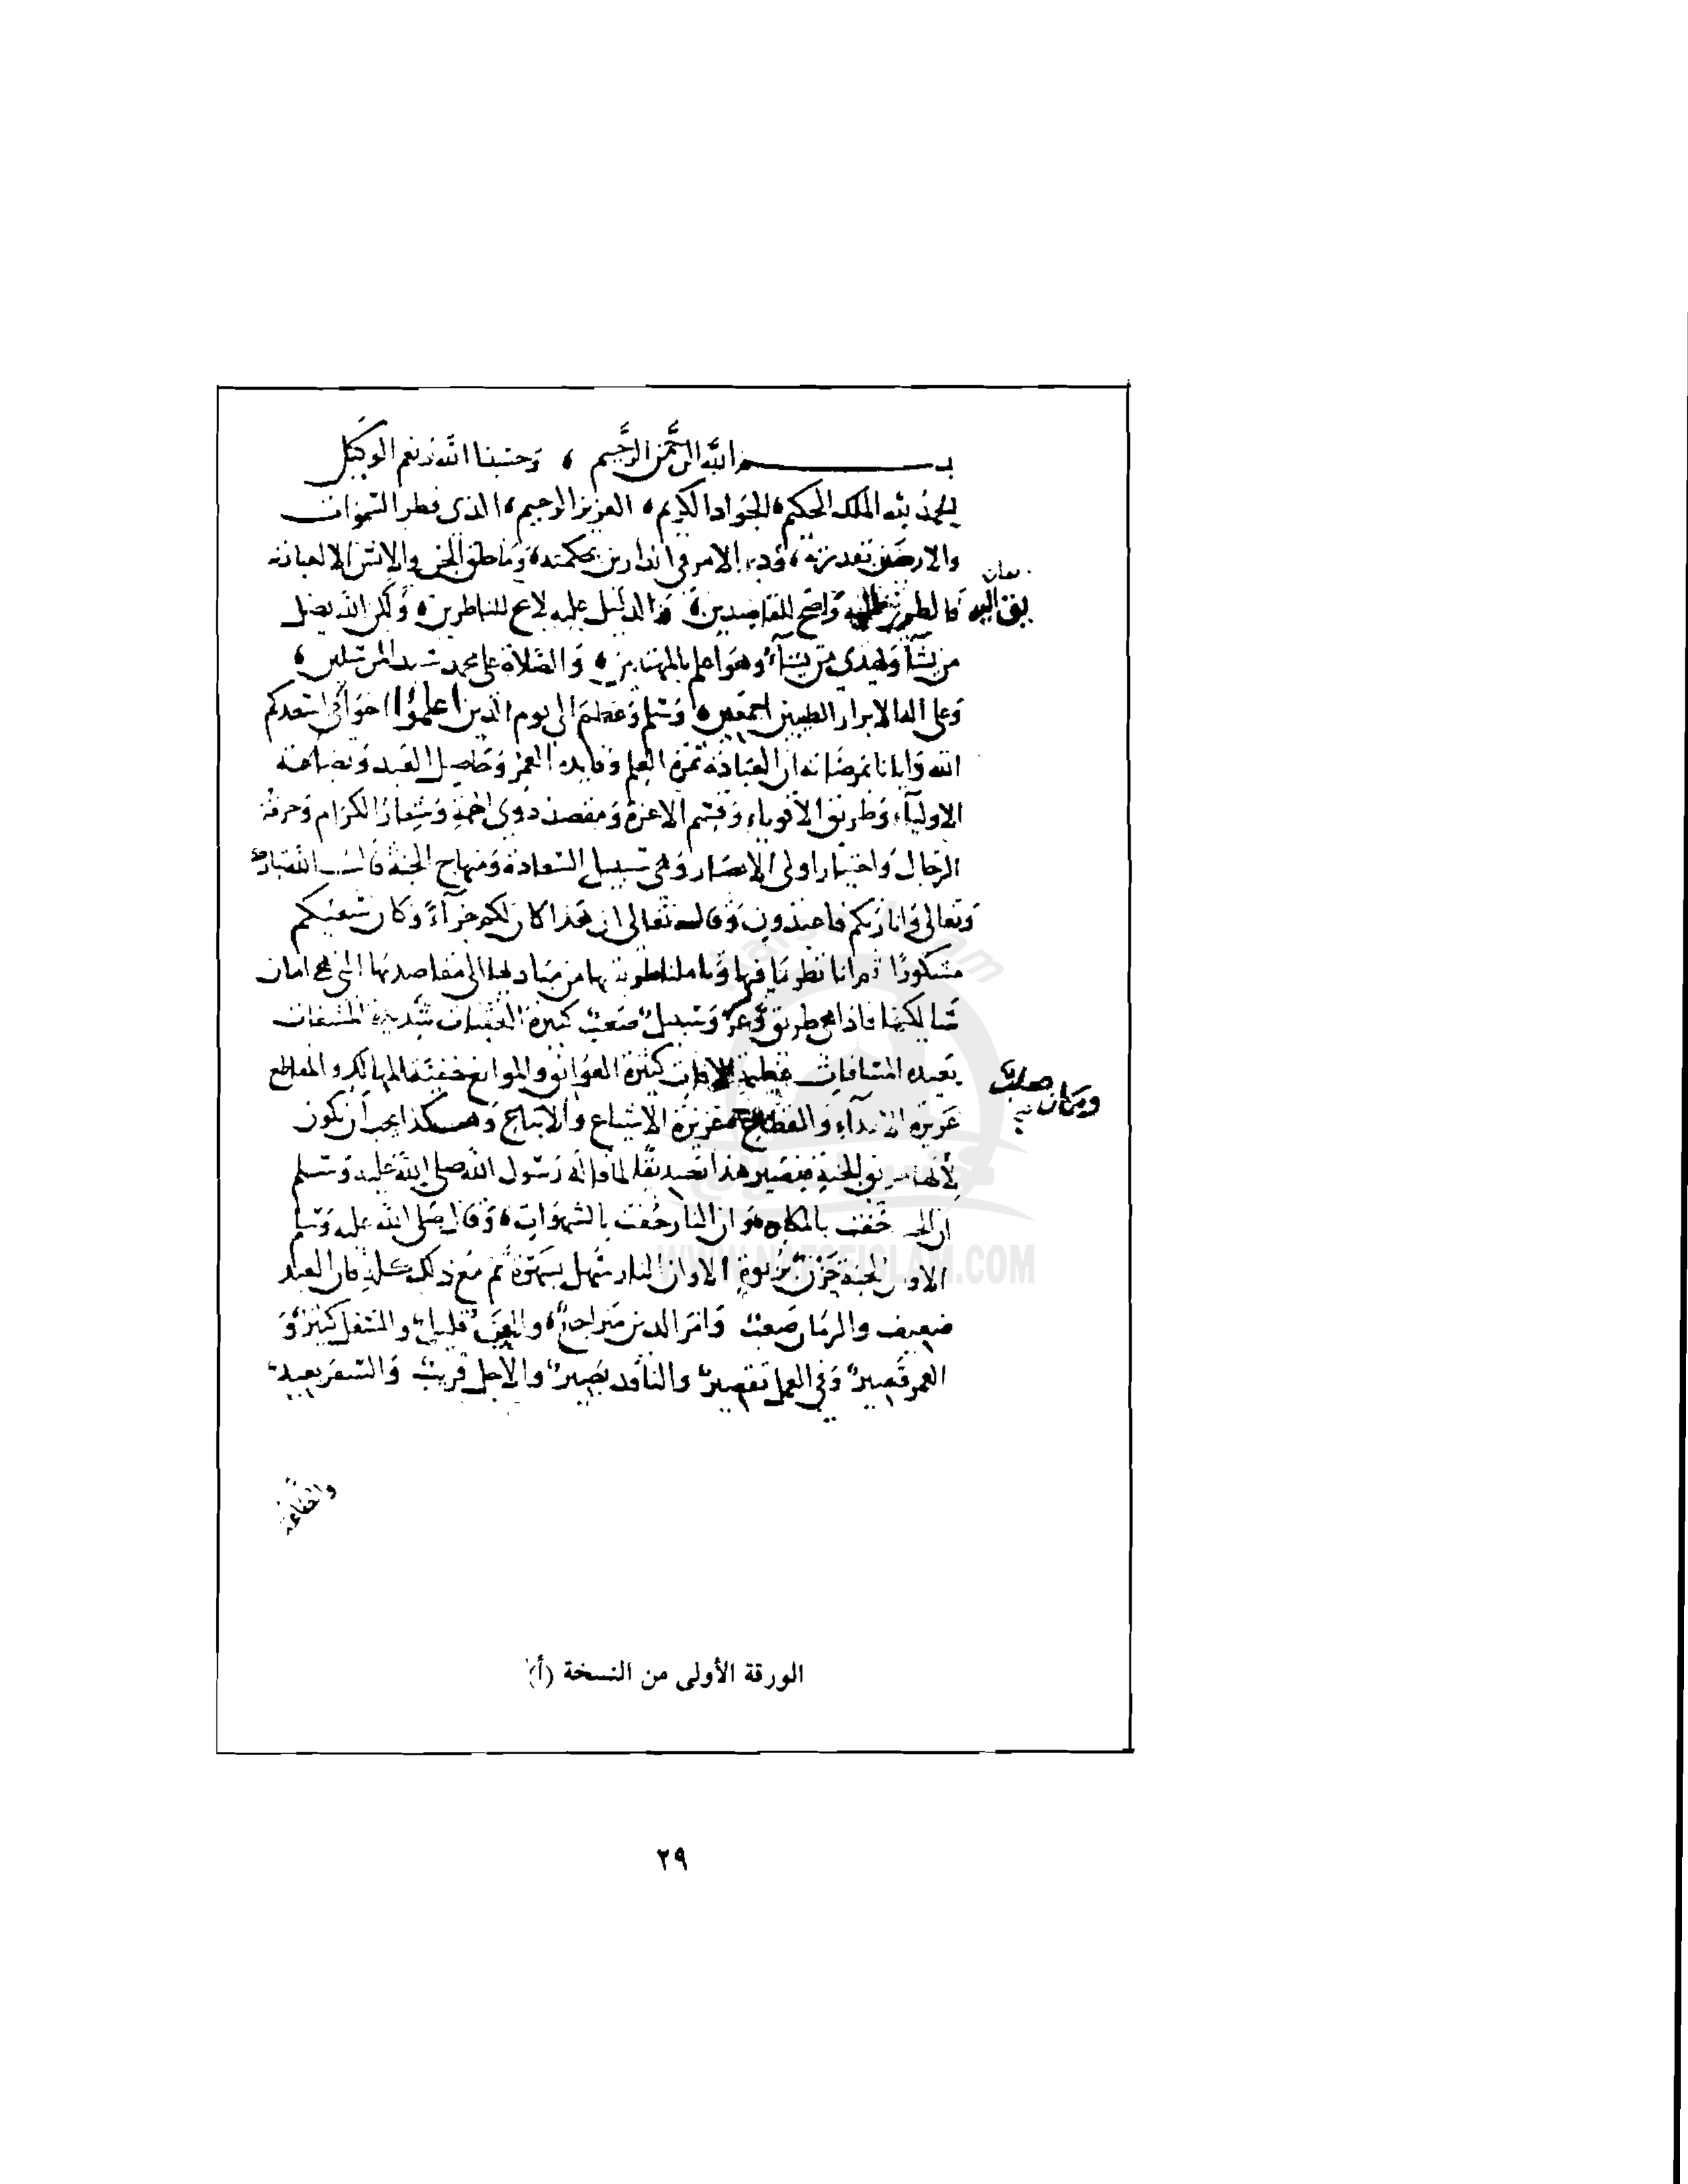 بسم الله الرحمن الرحيم ، وحسبنا الله ونعم الوكيل
الحمد لله الملك الحكيم الجواد الكريم ، العزيز الرحيم ، الذي فطر السموات
والارضين بقدرته ، ودبر الامر في الدارين بحكمته ، وما خلق الجن والانس الا لعبادته
فالطريق اليه واضح للقاصدين ، والدليل عليه لائح للناظرين ، ولكن الله يضل
من يشآ ويهدي من يشآء وهو اعلم بالمهتدين ، والصلاة على محمد سيد المرسلين ،
وعلى اله الابرار الطيبين اجمعين ، وسلم وعظم الى يوم الدين اعلموا اخواني اسعدكم
الله وايانا بمرضاته ان العبادة ثمرة العلم وفايدة العمر وحاصل العبد وبضاعة
الاوليآء وطريق الاقوياء وقسم الاعزة ومقصد ذوي الهمة وشعار الكرام وحرفة
الرجال واختيار اولى الابصار وهي سبيل السعادة ومنهاج الجنة قال الله تبارك
وتعالى وانا ربكم فاعبدون وقال تعالى ان هذا كان لكم جزآء وكان سعيكم
مشكورا ثم انا نظرنا فيها وتاملنا طريقها من مباديها الى مقاصدها التي هي اماني
سالكيها فاذا هي طريق وعر وسبيل صعب كثيرة العقبات شديدة المشقات
بعيدة المسافات عظيمة الافات كثيرة العوائق والموانع خفية المهالك والمقاطع
عزيزة الاشياع والاتباع وهكذا يجب ان تكون
لانها طريق الجنة فيصير هذا تصديقا لما قاله رسول الله صلى الله عليه وسلم
ان الجنة حفت بالمكاره وان النار حفت بالشهوات ، وقال صلى الله عليه وسلم
الا وان الجنة حزن بربوة الا وان النار سهل بسهوة ثم مع ذلك كله فان العبد
ضعيف والزمان صعب وامر الدين متراجع ، والفراغ قليل والشغل كثير و
العمر قصير وفي العمل تقصير والناقد بصير والاجل قريب والسفر بعيد
الورقة الأولى من النسخة (أ)
٢٩
WWW.NAFSEISLAM.COM